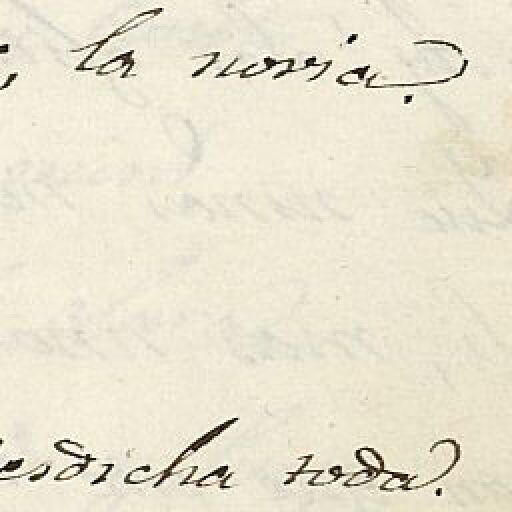 , la novia.
esdicha toda.